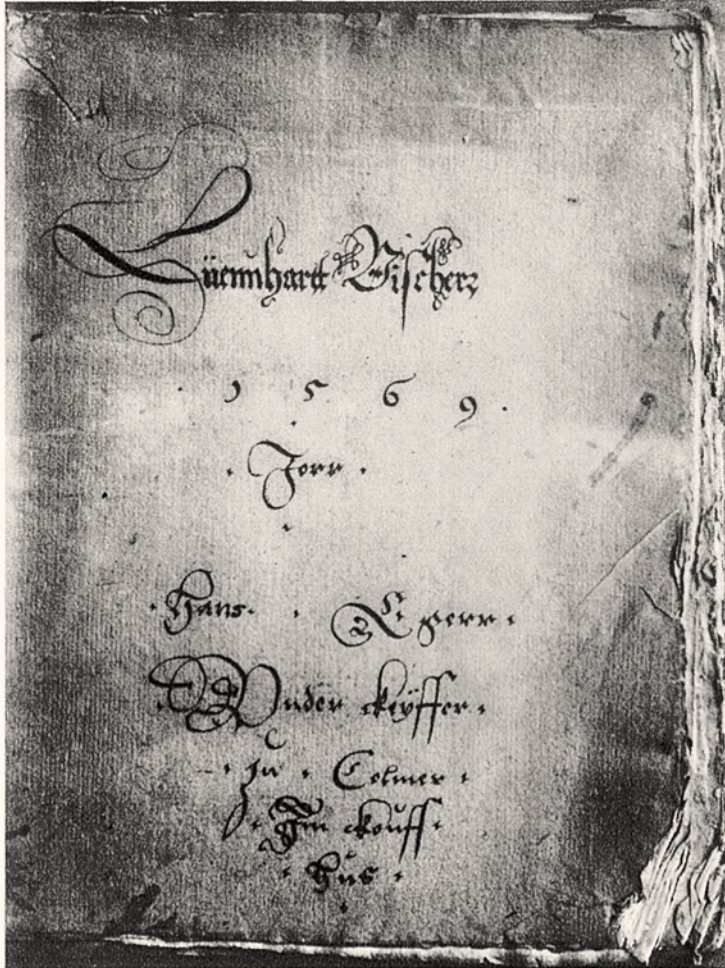 Lüennhartt Vischerr
1569
Jorr
Hans Egerr
Vnder ckeÿffer
zu Colmer
Jm ckouff
hus